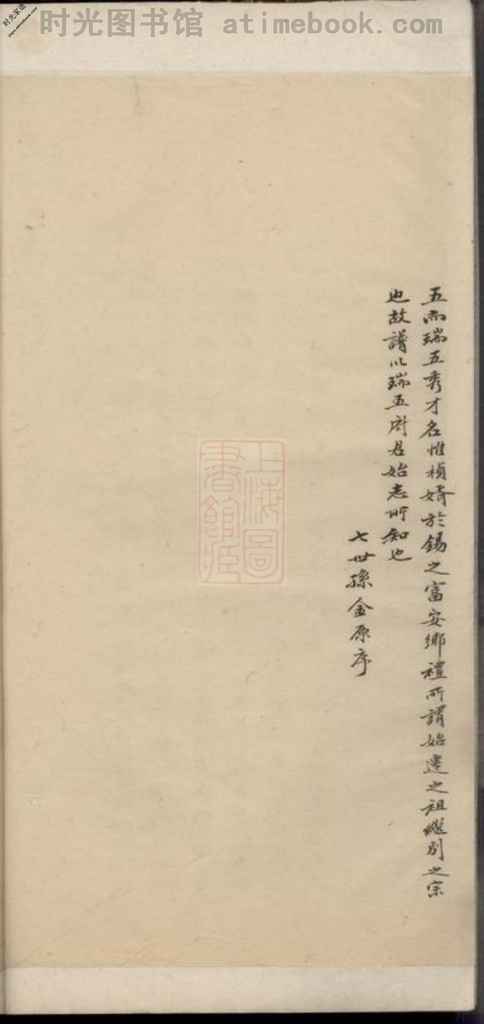 时光图书馆 - atimebook.com
五而瑞五秀才名惟禎婿於錫之富安鄉禮所謂始遷之祖繼別之宗
也故譜以瑞五府君始志所知也
七世孫金原序
上海圖
書館藏